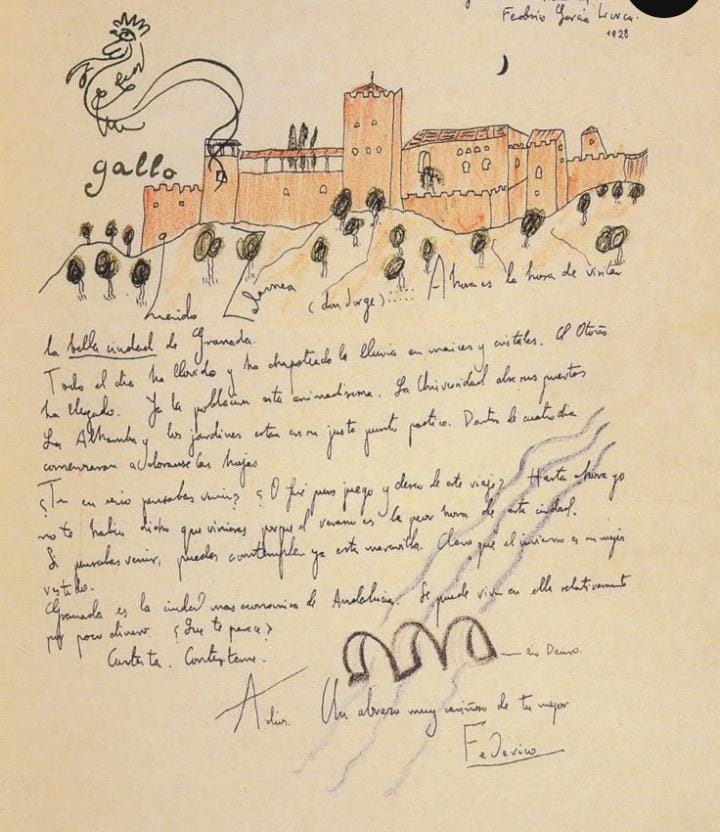 Federico García Lorca.
1928
gallo
querido
(don Jorge) ..... Ahora es la hora de visitar
la bella ciudad de Granada.
Todo el dia ha llovido y ha chapoteado la lluvia en maices y cristales. El Otoño
ha llegado. Ya la poblacion esta animadisima. La Universidad abre sus puertas
La Alhambra y los jardines estan en su justo punto poetico. Dentro de cuatro dias
comenzaran a dorarse las hojas
¿Tu en serio pensabas venir? ¿O fué puro juego y deseo de este viaje? Hasta ahora yo
no te habia dicho que vinieras porque el verano es la peor hora de esta ciudad.
Si pensabas venir, puedes contemplar ya esta maravilla. Claro que el invierno es su mejor
vestido.
Granada es la ciudad mas economica de Andalucia. Se puede vivir en ella relativamente
por poco dinero. ¿Que te parece?
Contesta. Contestame.
rio Dauro.
Adios. Un abrazo muy cariñoso de tu mejor
Federico